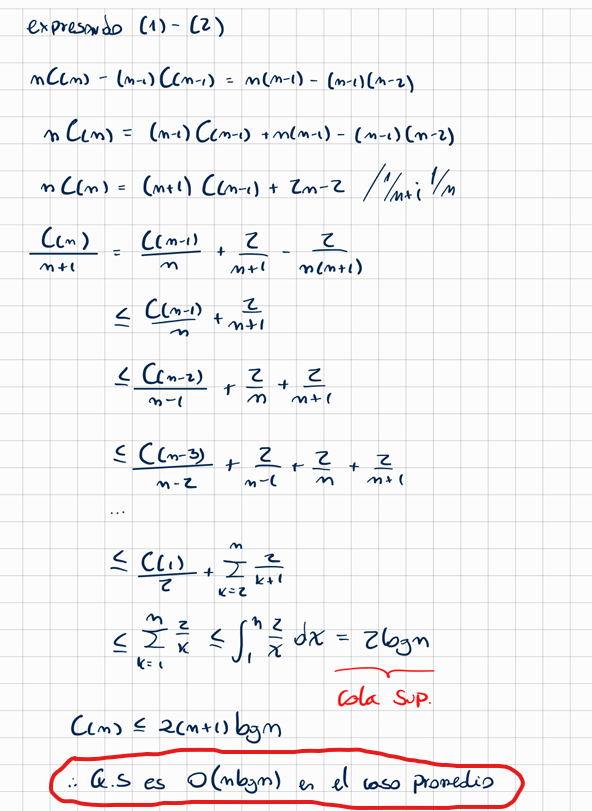 expresando (1) - (2)
nC(n) - (n-1)C(n-1) = n(n-1) - (n-1)(n-2)
nC(n) = (n-1)C(n-1) + n(n-1) - (n-1)(n-2)
nC(n) = (n+1)C(n-1) + 2n-2 / 1/n+1 1/n
C(n)/n+1 = C(n-1)/n + 2/n+1 - 2/n(n+1)
≤ C(n-1)/n + 2/n+1
≤ C(n-2)/n-1 + 2/n + 2/n+1
≤ C(n-3)/n-2 + 2/n-1 + 2/n + 2/n+1
...
≤ C(1)/2 + ∑_{k=2}^{n} 2/k+1
≤ ∑_{k=1}^{n} 2/k ≤ ∫_1^n 2/x dx = 2logn
Cota sup.
C(n) ≤ 2(n+1)logn
∴ Q.S es O(nlogn) en el caso promedio